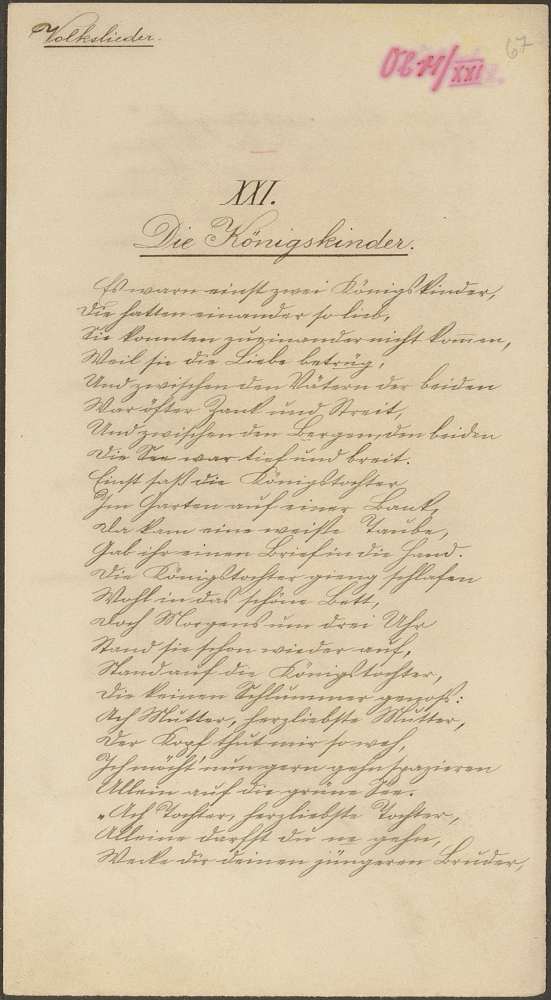 Volkslieder.
67
XXI.
Die Königskinder.
Es warn einst zwei Königskinder,
Die hatten einander so lieb,
Sie konnten zueinander nicht kom̄en,
Weil sie die Liebe betrüg,
Und zwischen den Vätern der beiden
War öfter Zank und Streit,
Und zwischen den Bergen, den beiden
Die See war tief und breit.
Einst saß die Königstochter
Im Garten auf einer Bank,
Da kam eine weiße Taube,
Gab ihr einen Brief in die Hand.
Die Königstochter gieng schlafen
Wohl in das schöne Bett,
Doch Morgens um drei Uhr
Stand sie schon wieder auf,
Stand auf die Königstochter,
Die keinen Schlummer genoß:
Ach Mutter, herzliebste Mutter,
Der Kopf thut mir so weh,
Ich möcht' nun gern gehn spazieren
Allein auf die grüne See.
„Ach Tochter, herzliebste Tochter,
Alleine darfst du ne gehn,
Wecke dir deinen jüngeren Bruder,